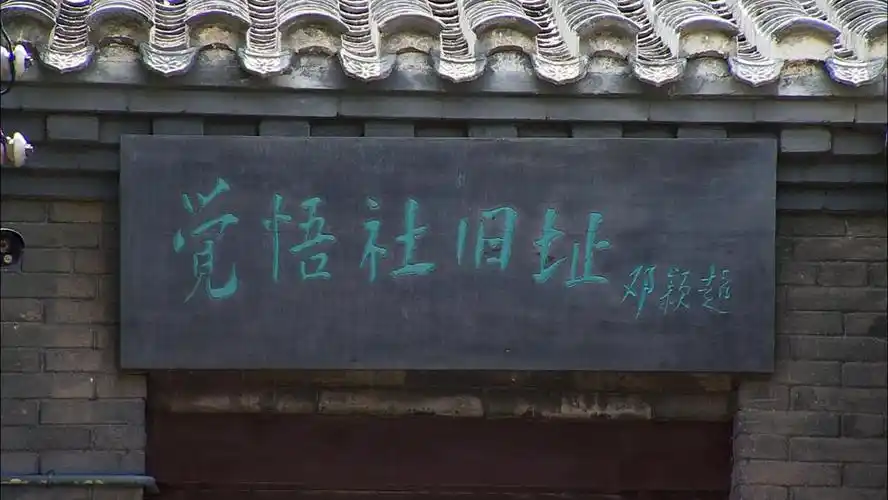 觉悟社旧址
邓颖超